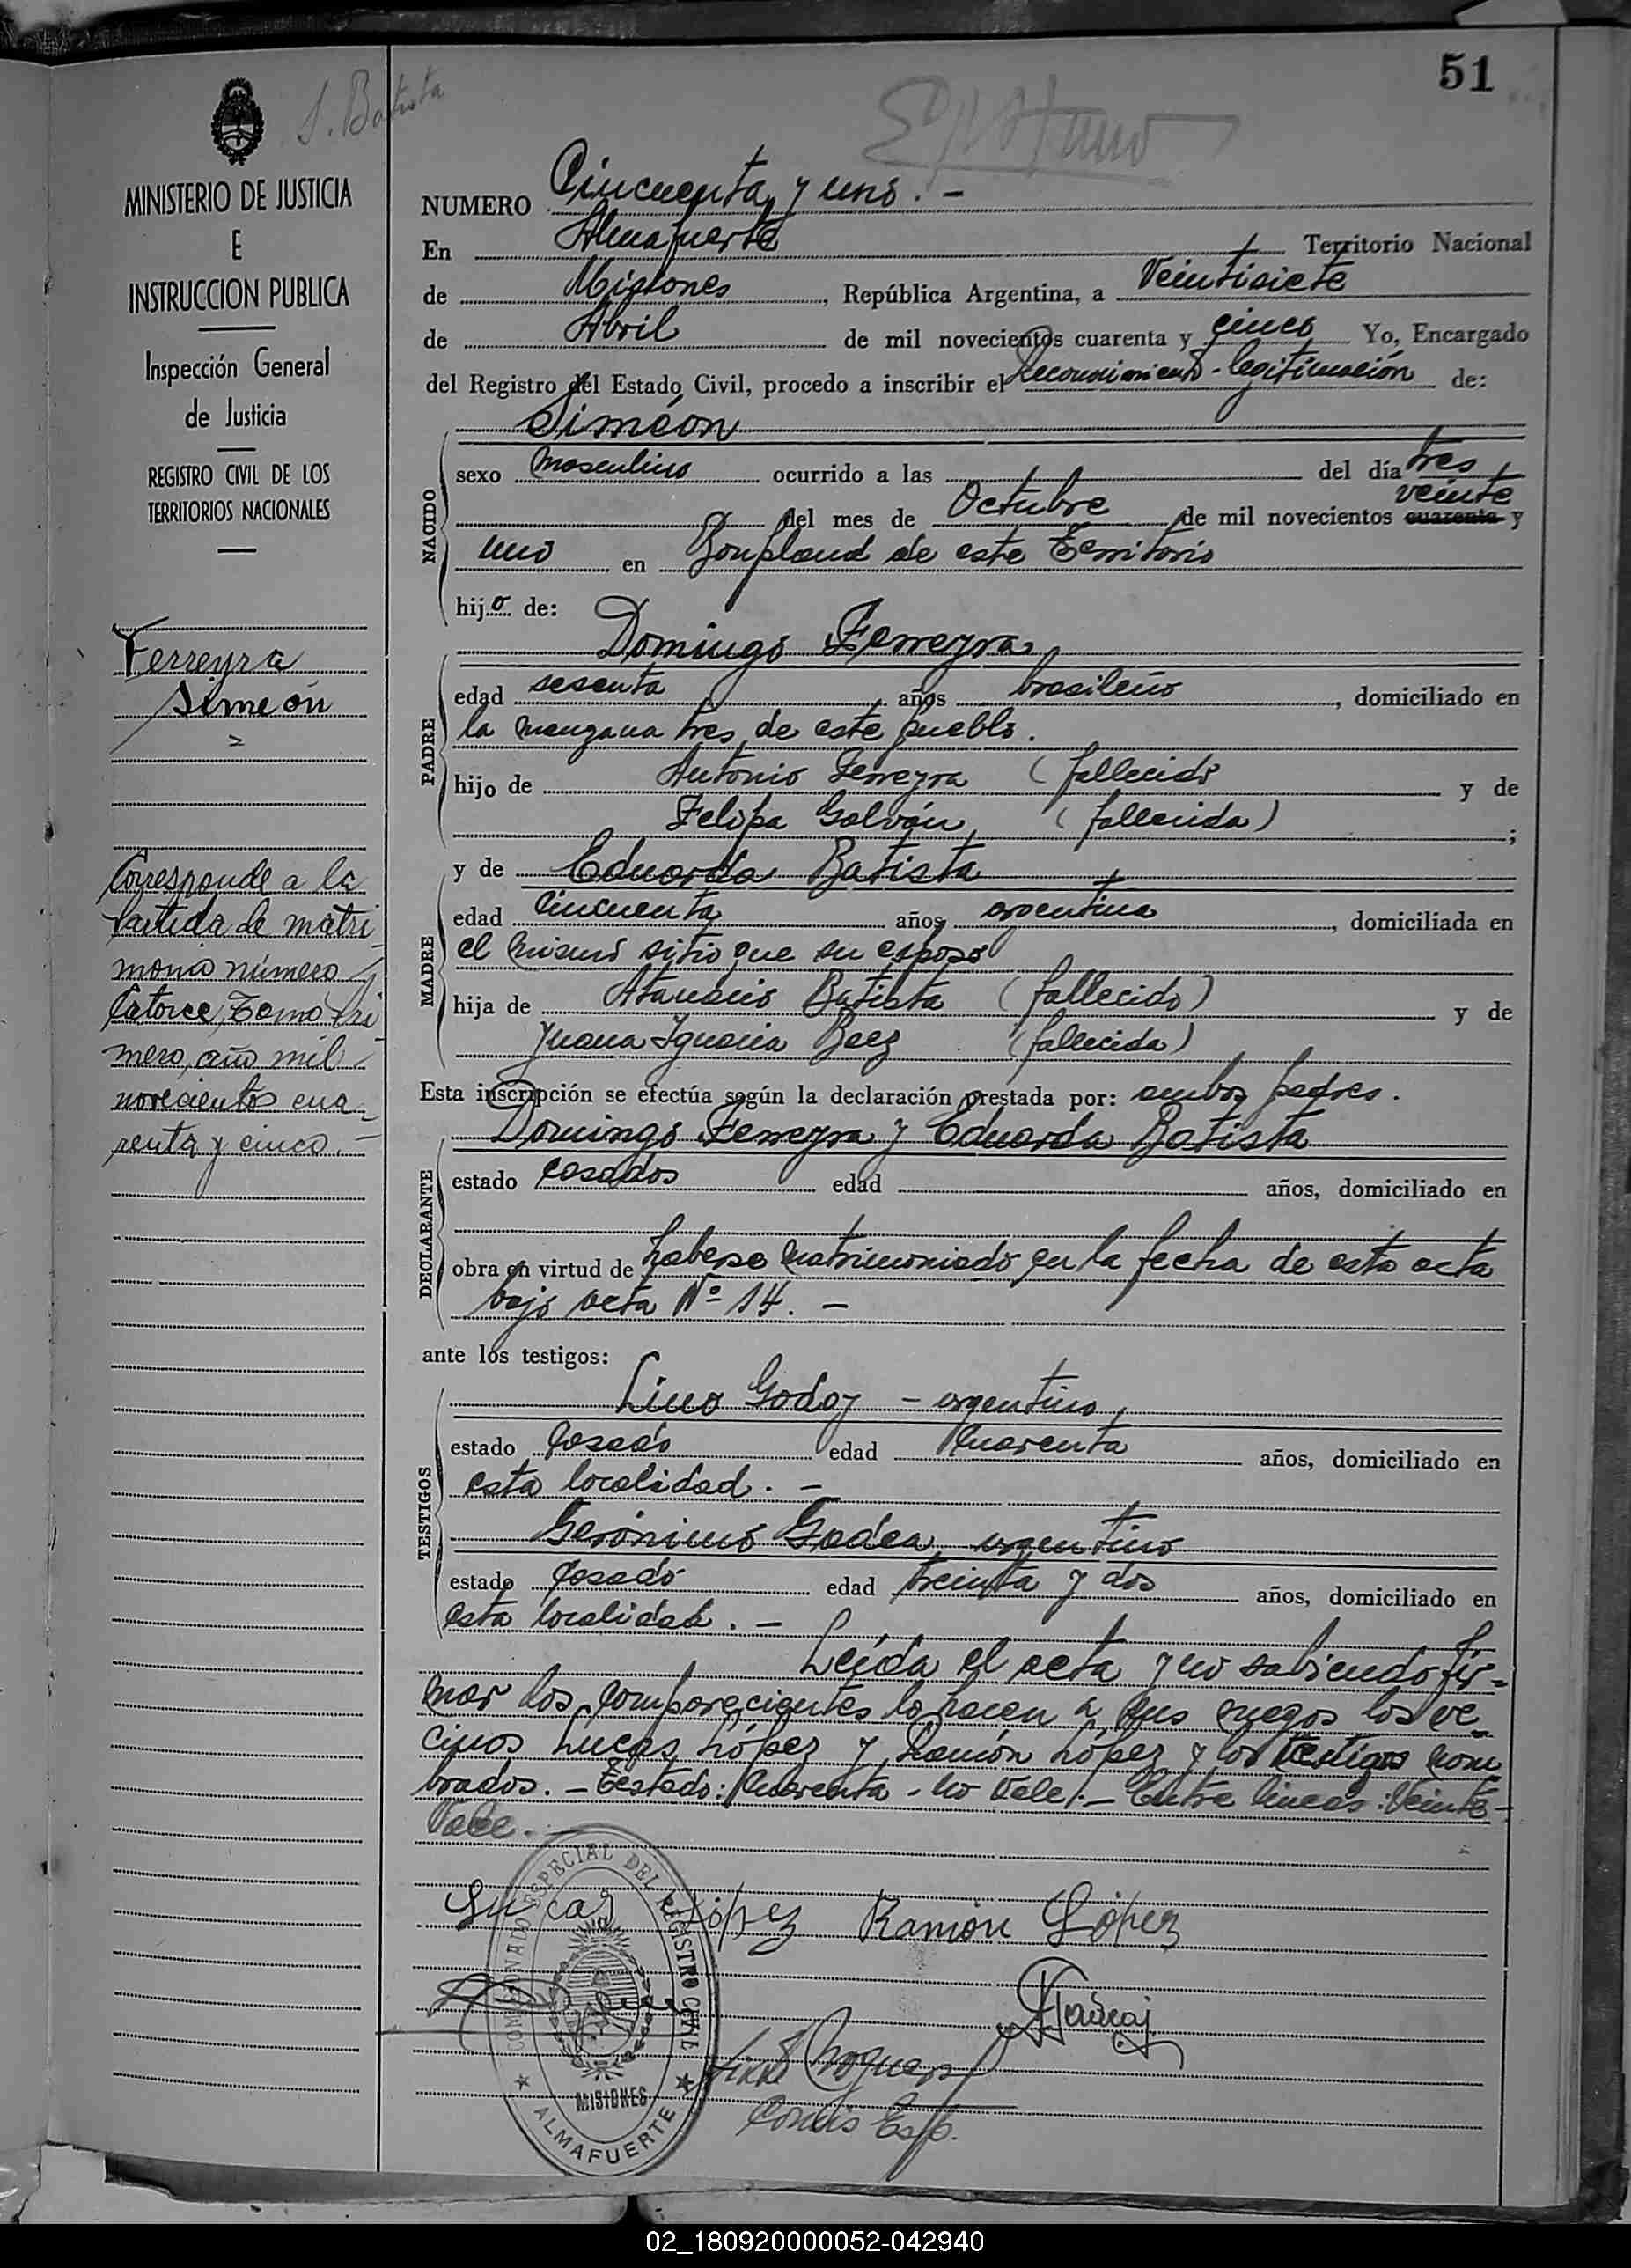 51
S. Batista
MINISTERIO DE JUSTICIA
E
INSTRUCCION PUBLICA
Inspección General
de Justicia
REGISTRO CIVIL DE LOS
TERRITORIOS NACIONALES
Ferreyra
Simeón
Corresponde a la
Partida de matri
monio número
Catorce, Tomo Pri
mero, año mil
novecientos cua
renta y cinco. –
NUMERO Cincuenta y uno. –
En Almafuerte Territorio Nacional
de Misiones, República Argentina, a Veintisiete
de Abril de mil novecientos cuarenta y cinco Yo, Encargado
del Registro del Estado Civil, procedo a inscribir el Reconocimiento - legitimación de:
Simeón
NACIDO
sexo masculino ocurrido a las del día tres
veinte
del mes de Octubre de mil novecientos cuarenta y
uno en Bonpland de este Territorio
hijo de:
Domingo Ferreyra
PADRE
edad sesenta años brasileño, domiciliado en
la manzana tres de este pueblo.
hijo de Antonio Ferreyra (fallecido y de
Felipa Galván (fallecida) ;
y de Eduarda Batista
MADRE
edad Cincuenta años argentina, domiciliada en
el mismo sitio que su esposo
hija de Atanacio Batista (fallecido) y de
Juana Ignacia Baez (fallecida)
Esta inscripción se efectúa según la declaración prestada por: ambos padres.
Domingo Ferreyra y Eduarda Batista
DECLARANTE
estado casados edad años, domiciliado en
obra en virtud de haberse matrimoniado en la fecha de esta acta
bajo acta Nº 14. –
ante los testigos:
Lino Godoy – argentino
TESTIGOS
estado Casado edad Cuarenta años, domiciliado en
esta localidad. –
Gerónimo Godea argentino
estado Casado edad treinta y dos años, domiciliado en
esta localidad. –
Leída el acta y no sabiendo fir-
mar los comparecientes lo hacen a sus ruegos los ve-
cinos Lucas López y Ramón López y los testigos nom
brados. – Testado: Cuarenta - no Vale. – Entre lineas: Veinte -
Vale. –
Lucas López Ramón López
COMISIONADO ESPECIAL DEL REGISTRO CIVIL
MISIONES
ALMAFUERTE
Comis Esp.
02_180920000052-042940